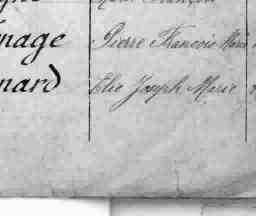 nage Pierre François Marie
nard Elie Joseph Marie